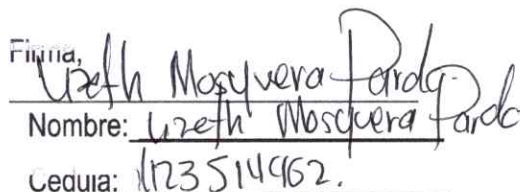 Firma,
Lizeth Mosquera Pardo.
Nombre: Lizeth Mosquera Pardo
Cedula: 1123514962.